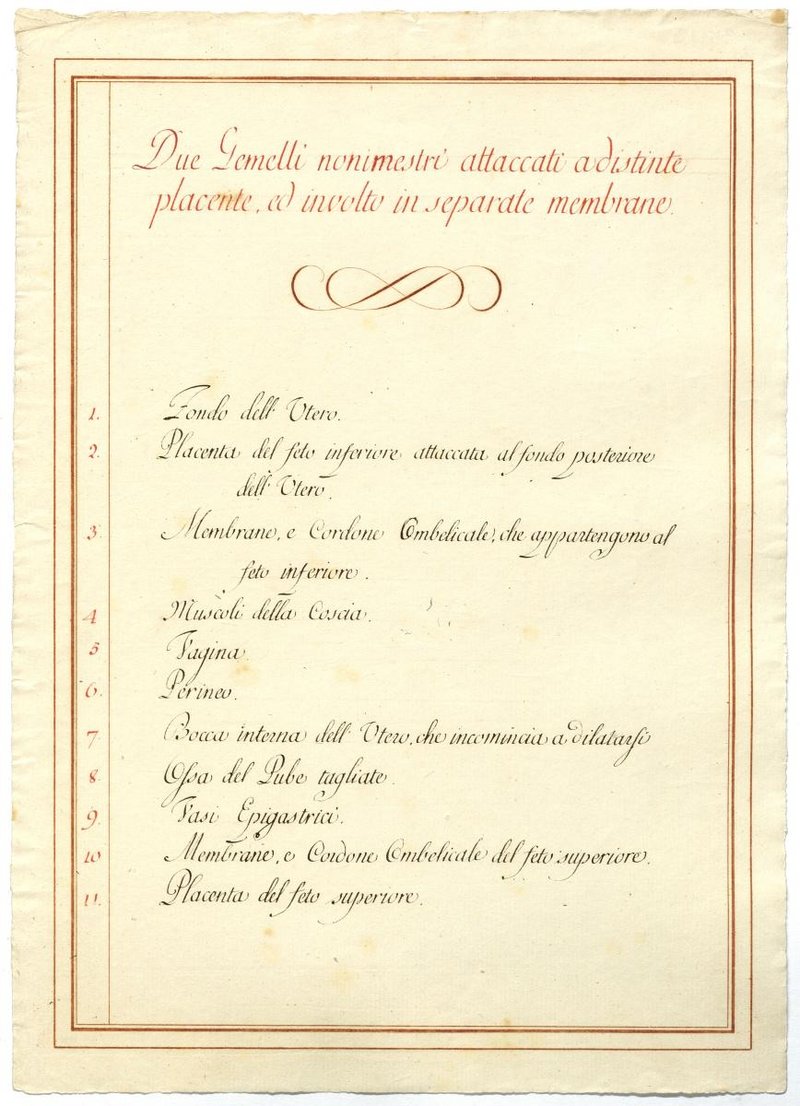 Due Gemelli nonimestri attaccati a distinte
placente, ed involto in separate membrane.
1. Fondo dell' Utero.
2. Placenta del feto inferiore attaccata al fondo posteriore
dell' Utero.
3. Membrane, e Cordone Ombelicale, che appartengono al
feto inferiore.
4 Muscoli della Coscia.
5 Vagina.
6. Perineo.
7 Bocca interna dell' Utero, che incomincia a dilatarsi
8. Ossa del Pube tagliate.
9. Vasi Epigastrici.
10 Membrane, e Cordone Ombelicale del feto superiore.
11. Placenta del feto superiore.